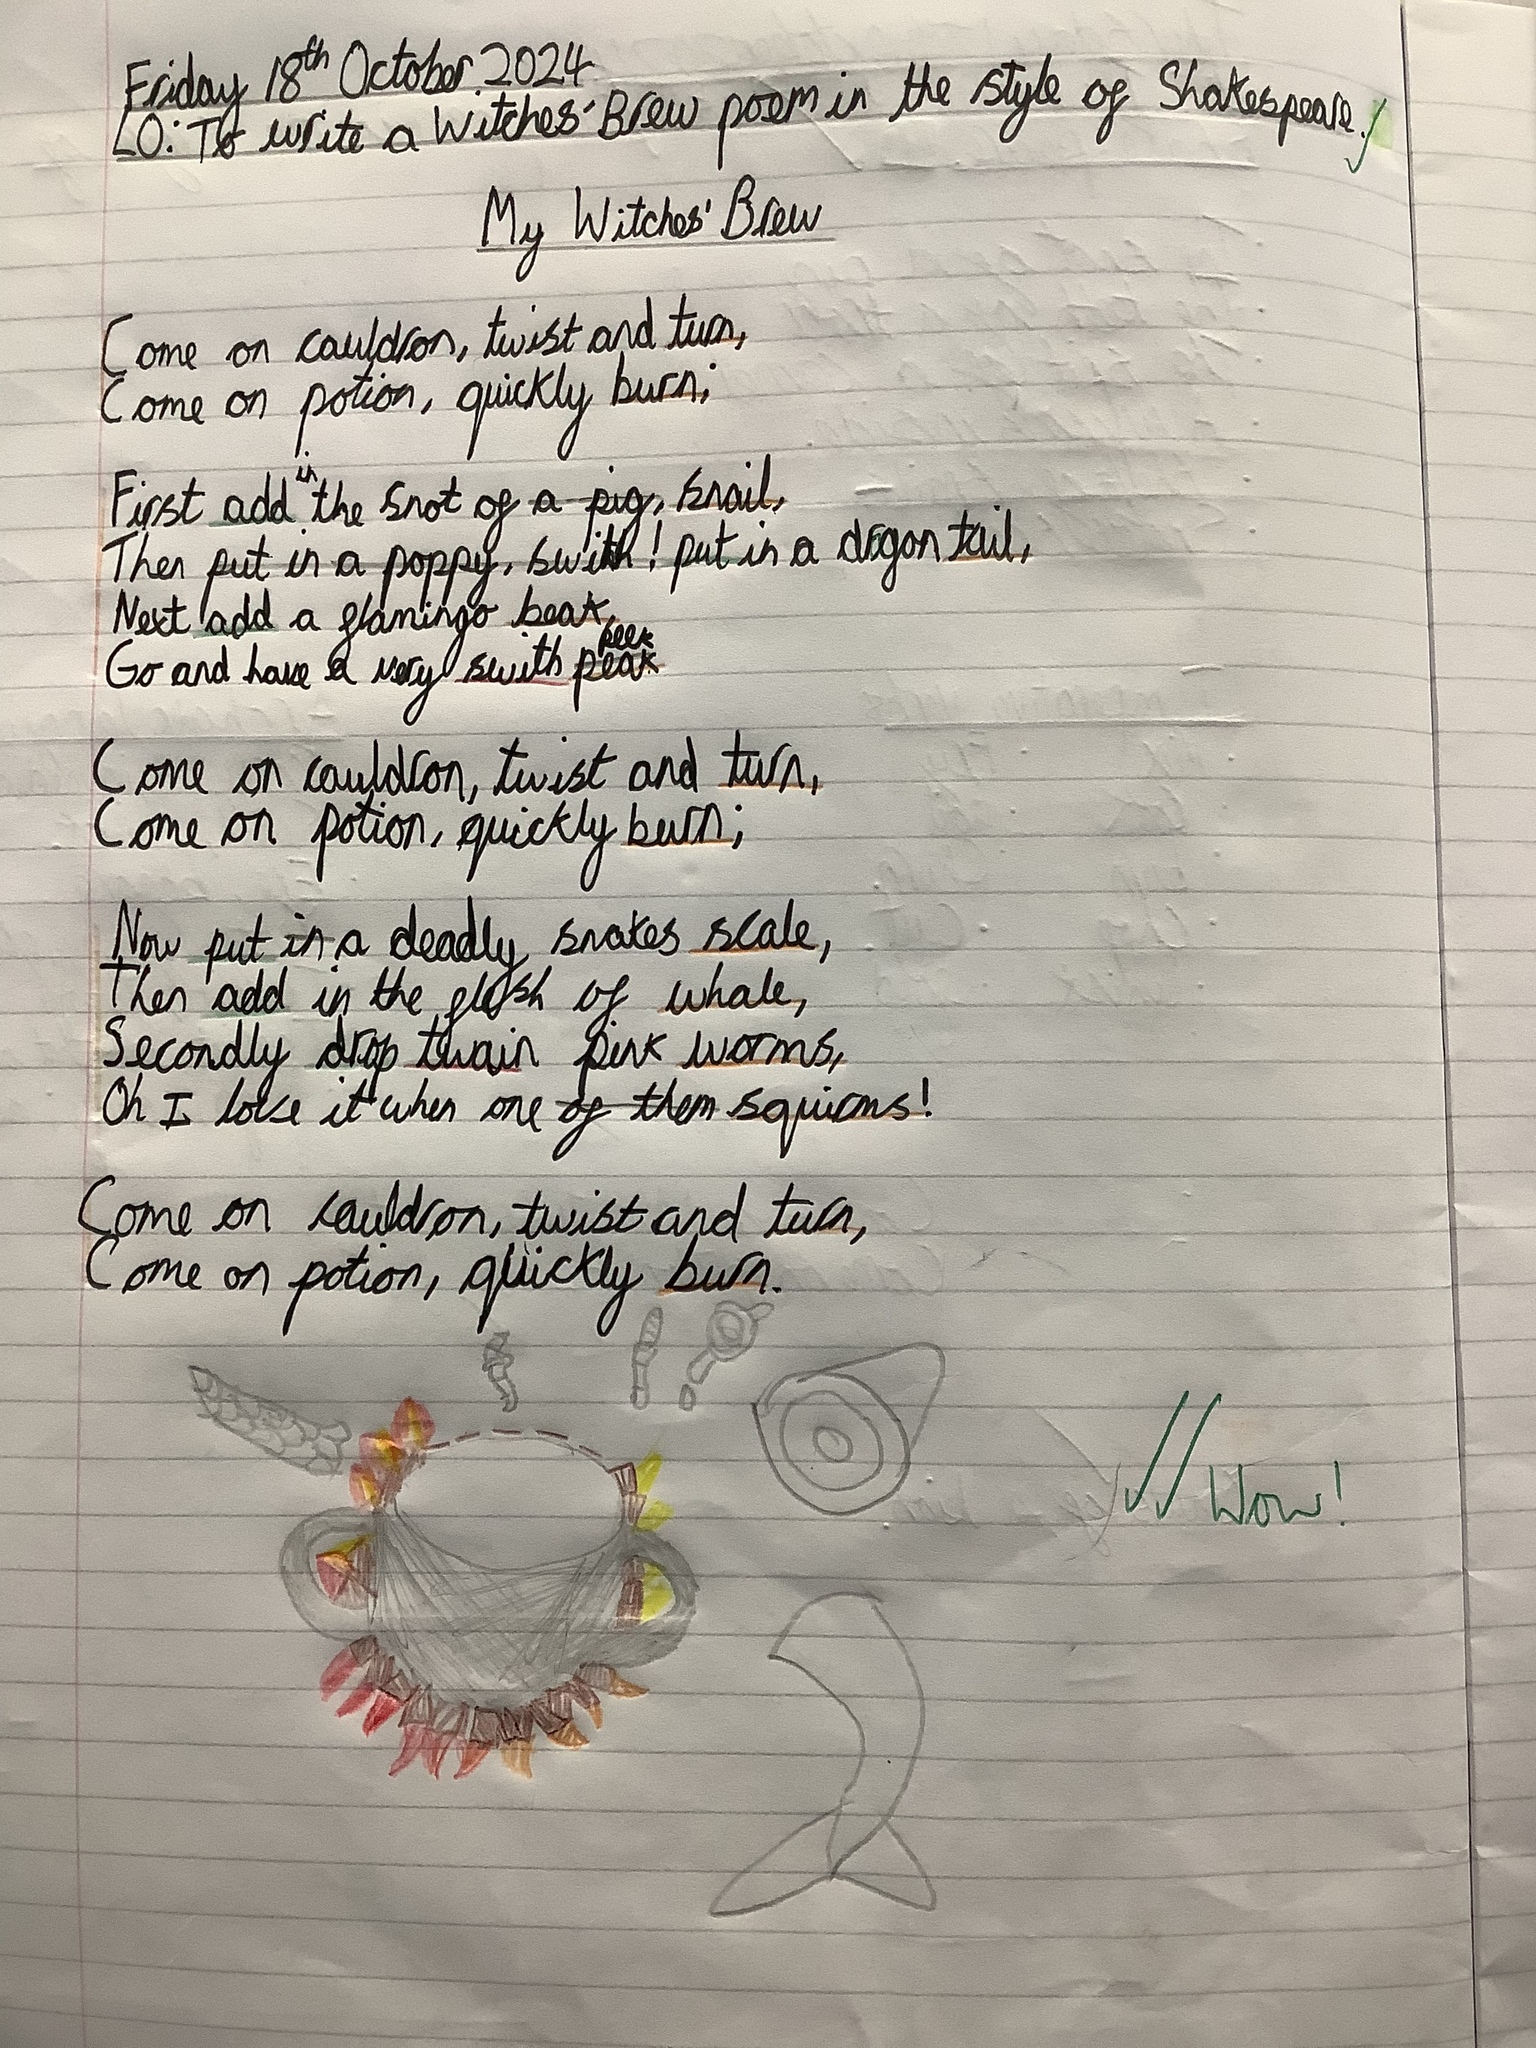 Friday 18th October 2024
LO: To write a Witches' Brew poem in the style of Shakespeare.
My Witches' Brew
Come on cauldron, twist and turn,
Come on potion, quickly burn;
First add in the snot of a pig, snail,
Then put in a poppy, swith! put in a drgon tail,
Next add a flamingo beak,
Go and have a very swith peak peek
Come on cauldron, twist and turn,
Come on potion, quickly burn;
Now put in a deadly snakes scale,
Then add in the flesh of whale,
Secondly drop twain pink worms,
Oh I love it when one of them squirms!
Come on cauldron, twist and turn,
Come on potion, quickly burn.
Wow!